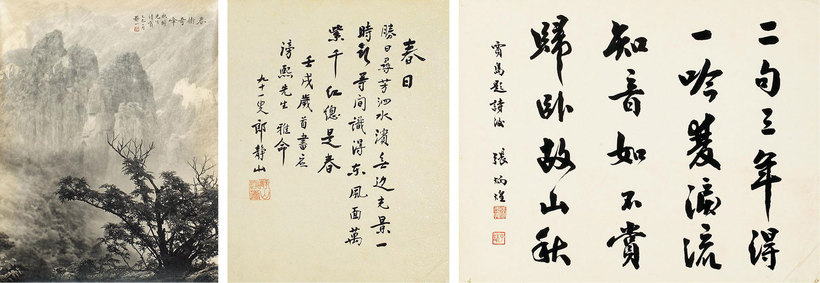 春樹奇峰
春日
勝日尋芳泗水濱无边光景一
時新等间識得东風面萬
紫千红總是春
壬戌歲首書应
滂熙先生雅命
九十一叟郎静山
二句三年得
一吟雙淚流
知音如不賞
歸卧故山秋
賈島題詩後
張炳煌